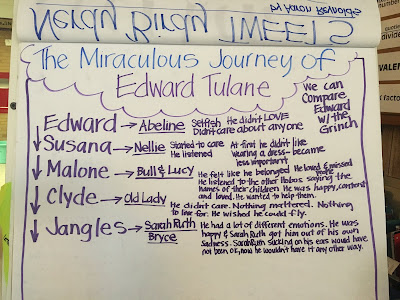 Nerdy Birdy TWEETS
by Aaron Reynolds
The Miraculous Journey of
Edward Tulane
We can
Compare
Edward
w/the
Grinch
Edward → Abeline Selfish He didn't LOVE
Didn't care about anyone
Susana → Nellie Started to care At first he didn't like
He listened wearing a dress - became
less important
Malone → Bull & Lucy He felt like he belonged He loved & missed people
He listened to the other Hobos saying the
names of their children He was happy, content
and loved. He wanted to help them.
Clyde → Old Lady He didn't care. Nothing mattered. Nothing
to live for. He wished he could fly.
Jangles → Sarah Ruth He had a lot of different emotions. He was
Bryce happy & Sarah Ruth got him out of his own
sadness. Sarah Ruth sucking on his ears would have
not been ok, now he wouldn't have it any other way.
VALEN